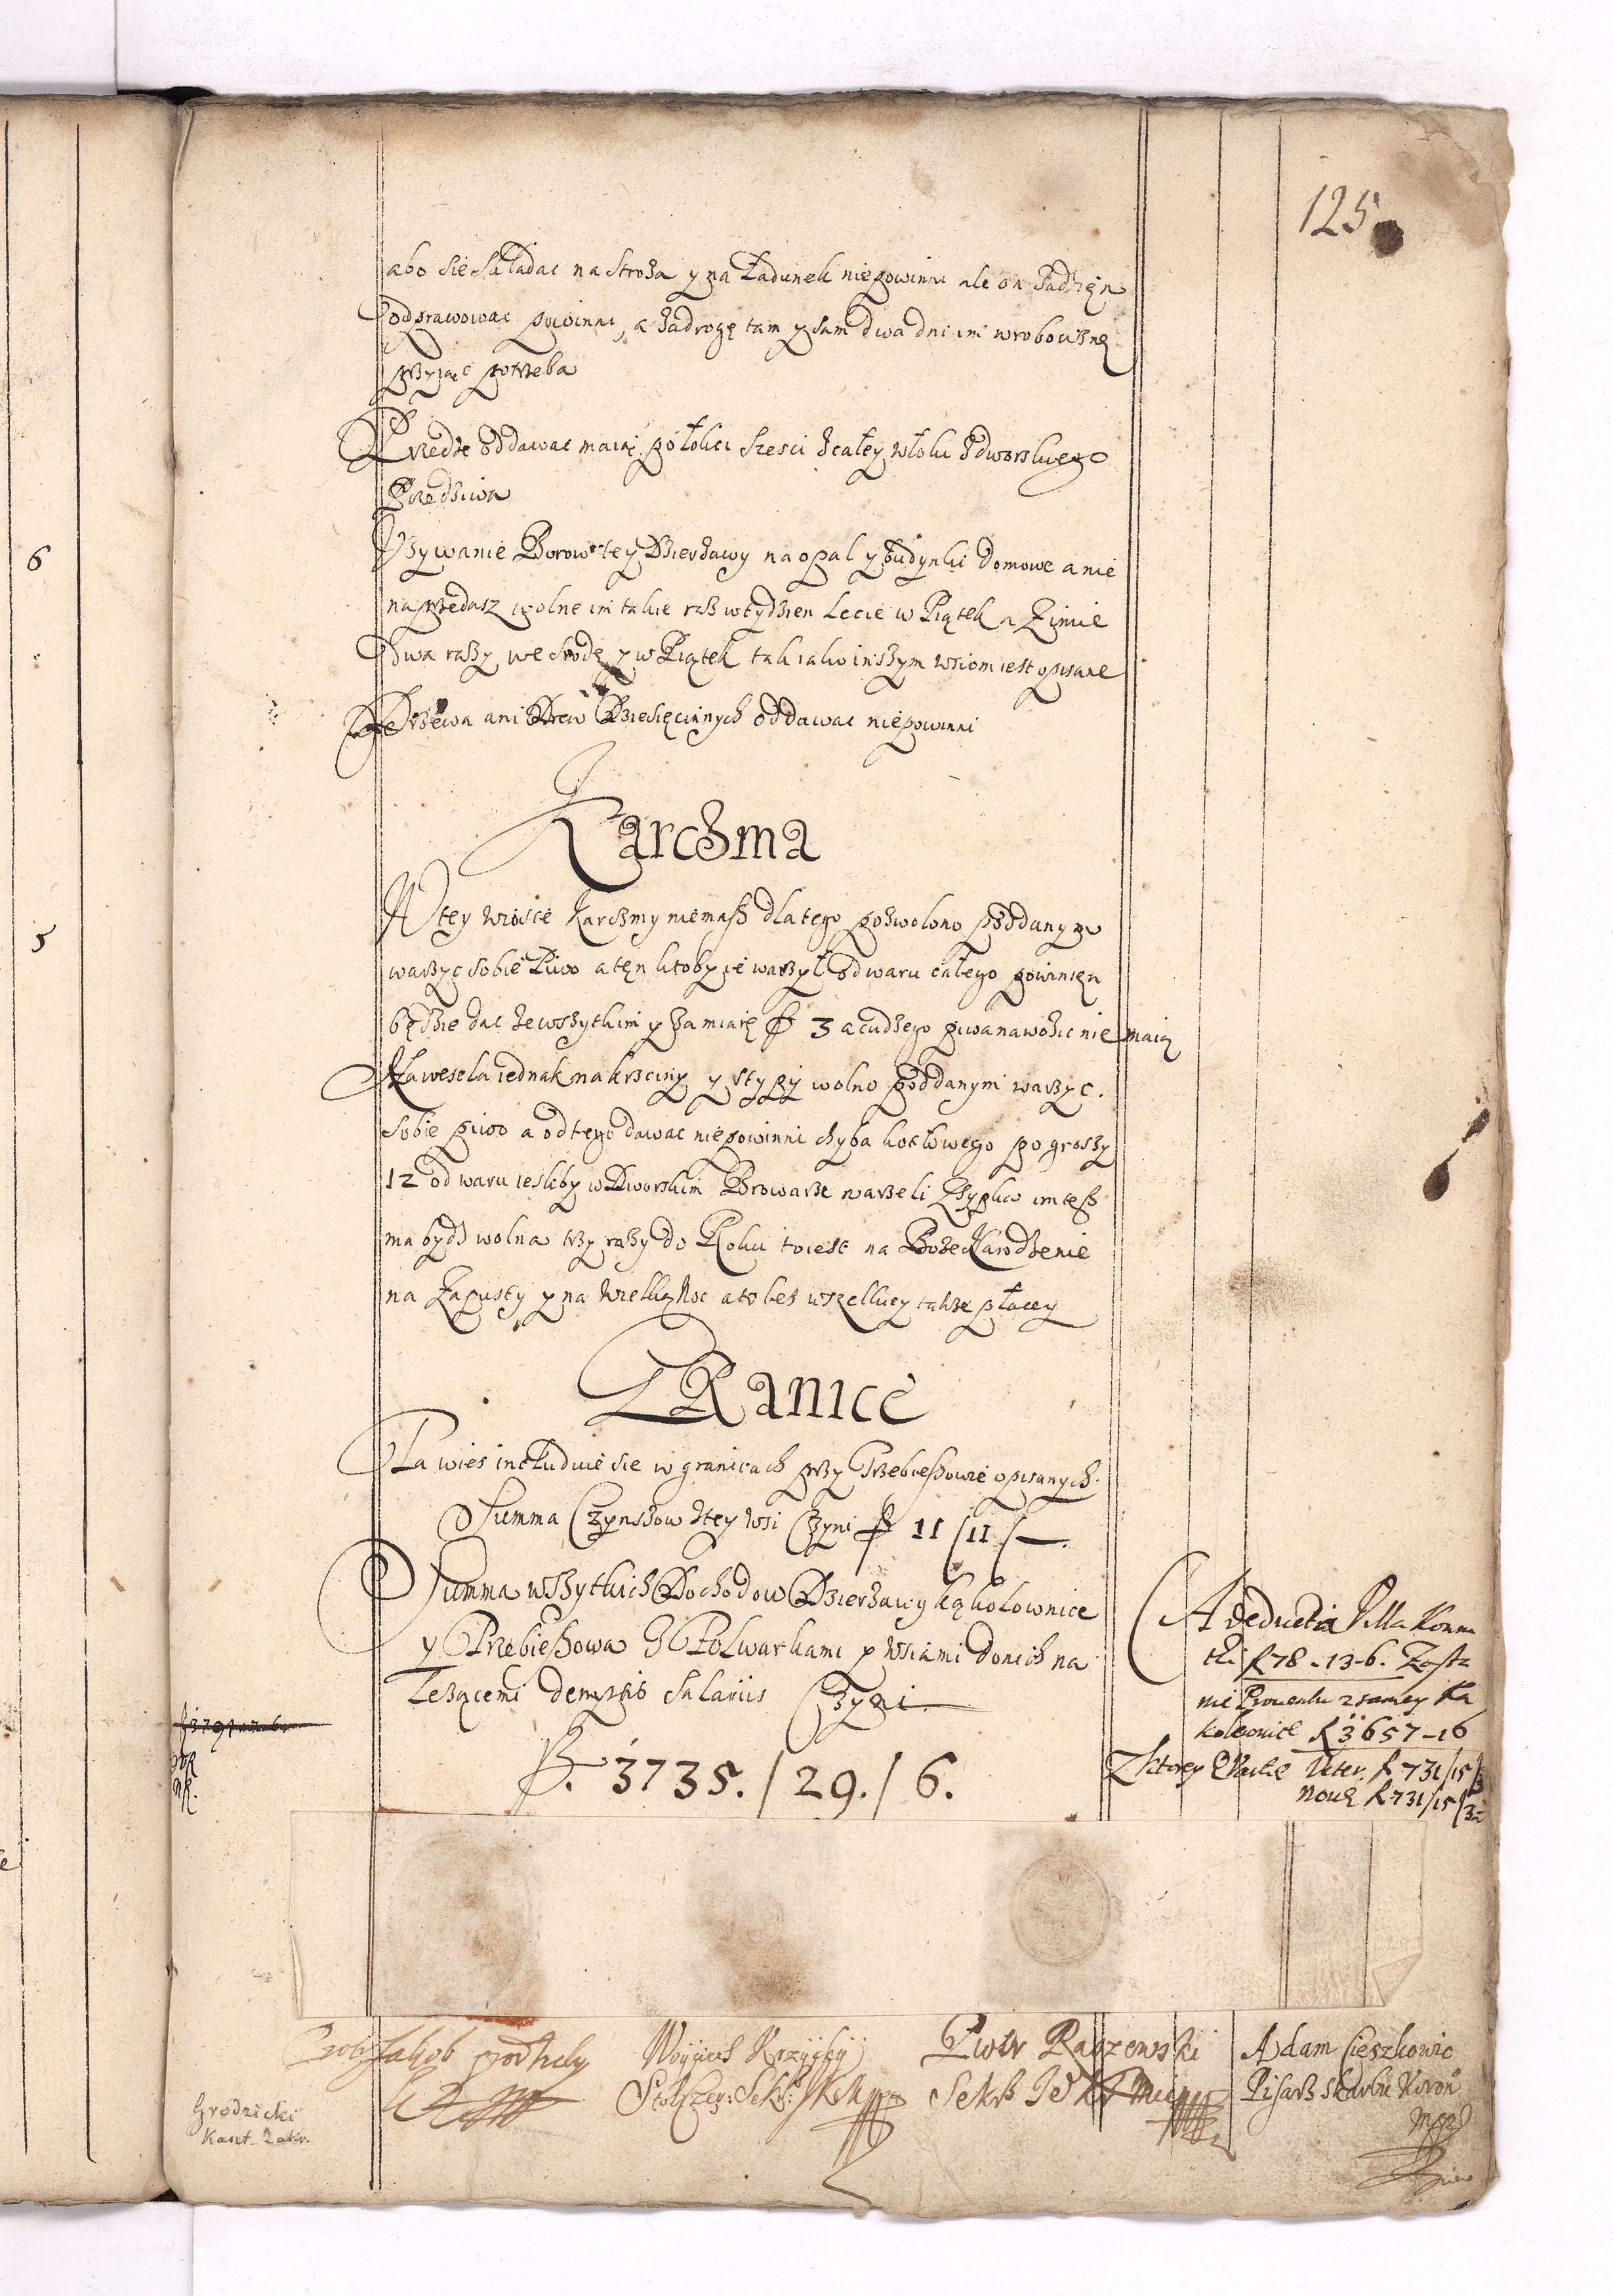 125
abo sie składac na Stroża y na Ładunek niepowinni ale on każdy
odprawowac powinni, a za drogę tam y sam dwa dni im w robociznę
przyjąc potrzeba
Przędze oddawac maią połokci szesci z całey włoki z dworskiego
Przędziwa
Vzywanie Borow tey Dzierżawy na opał y budynki domowe a nie
na przedasz wolne im takie raz w tydzien Lecie w Piątek a Zimie
dwa razy we środę y w Piątek tak iako inszym wsiom iest opisane
Drzewa ani Drew Dziesięcinnych oddawac niepowinni
Karczma
W tey wiosce Karczmy niemasz dlatego pozwolono poddanym
warzyc sobie Piwo a ten ktoby ie warzył od waru całego powinien
będzie dac ze wszytkim y za miarę f 3 a cudzego piwa nawozic nie maią
Na wesela iednak na krzciny y stypy wolno poddanym warzyc
sobie piwo a od tego dawac niepowinni chyba kotłowego po groszy
12 od waru iesliby w Dworskim Browarze warzeli Zsypka im tesz
ma bydz wolna trzy razy do Roku to iest na Boże Narodzenie
na Zapusty y na Wielką Noc a to bez wszelkiey także płacey
GRanice
Ta wies includuie sie w granicach przy Trzebieszowie opisanych
Summa Czynszow z tey wsi Czyni f 11/11/—
Summa wszytkich Dochodow Dzierżawy Kąkolownice
y Trzebieszowa z Folwarkami y wsiami do nich na
leżącemi demptis salariis Czyni
f. 3735./29./6.
A deducta Villa
f 78-13-6. Zosta
nie Prouentu z samey Ką
kolownice f 3657-16
Z ktorey Quarta Veter. f 731/15/3
noua f 731/15/3
6
5
Jakob
Woyciech Krzycki
Piotr Raczewski
Adam Cieszkowic
Pisarz skarbu Koron
Grodzicki